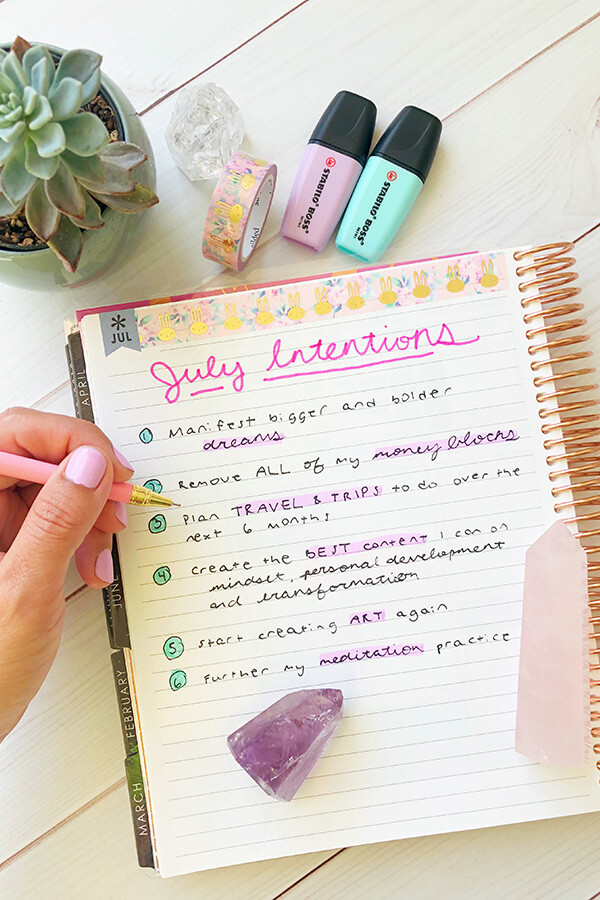 STABILO BOSS
MINI
STABILO BOSS
MINI
JUL
July Intentions
1 Manifest bigger and bolder
dreams
2 Remove ALL of my money blocks
3 Plan TRAVEL & TRIPS to do over the
next 6 months
4 Create the BEST content I can on
mindset, personal development
and transformation
5 Start creating ART again
6 Further my meditation practice
APRIL
JUNE
FEBRUARY
MARCH